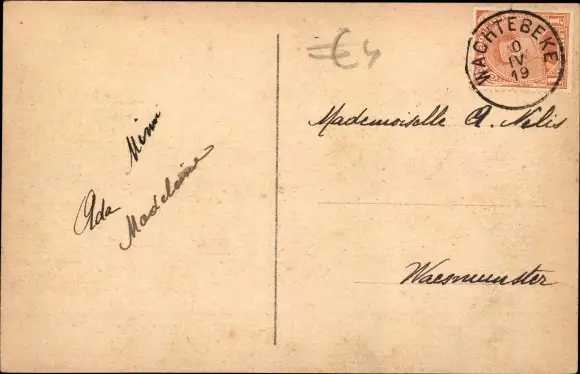 =€4
WACHTEBEKE
0
IV
19
Mademoiselle A. Nelis
Waesmunster
Mimi
Ada
Madeleine